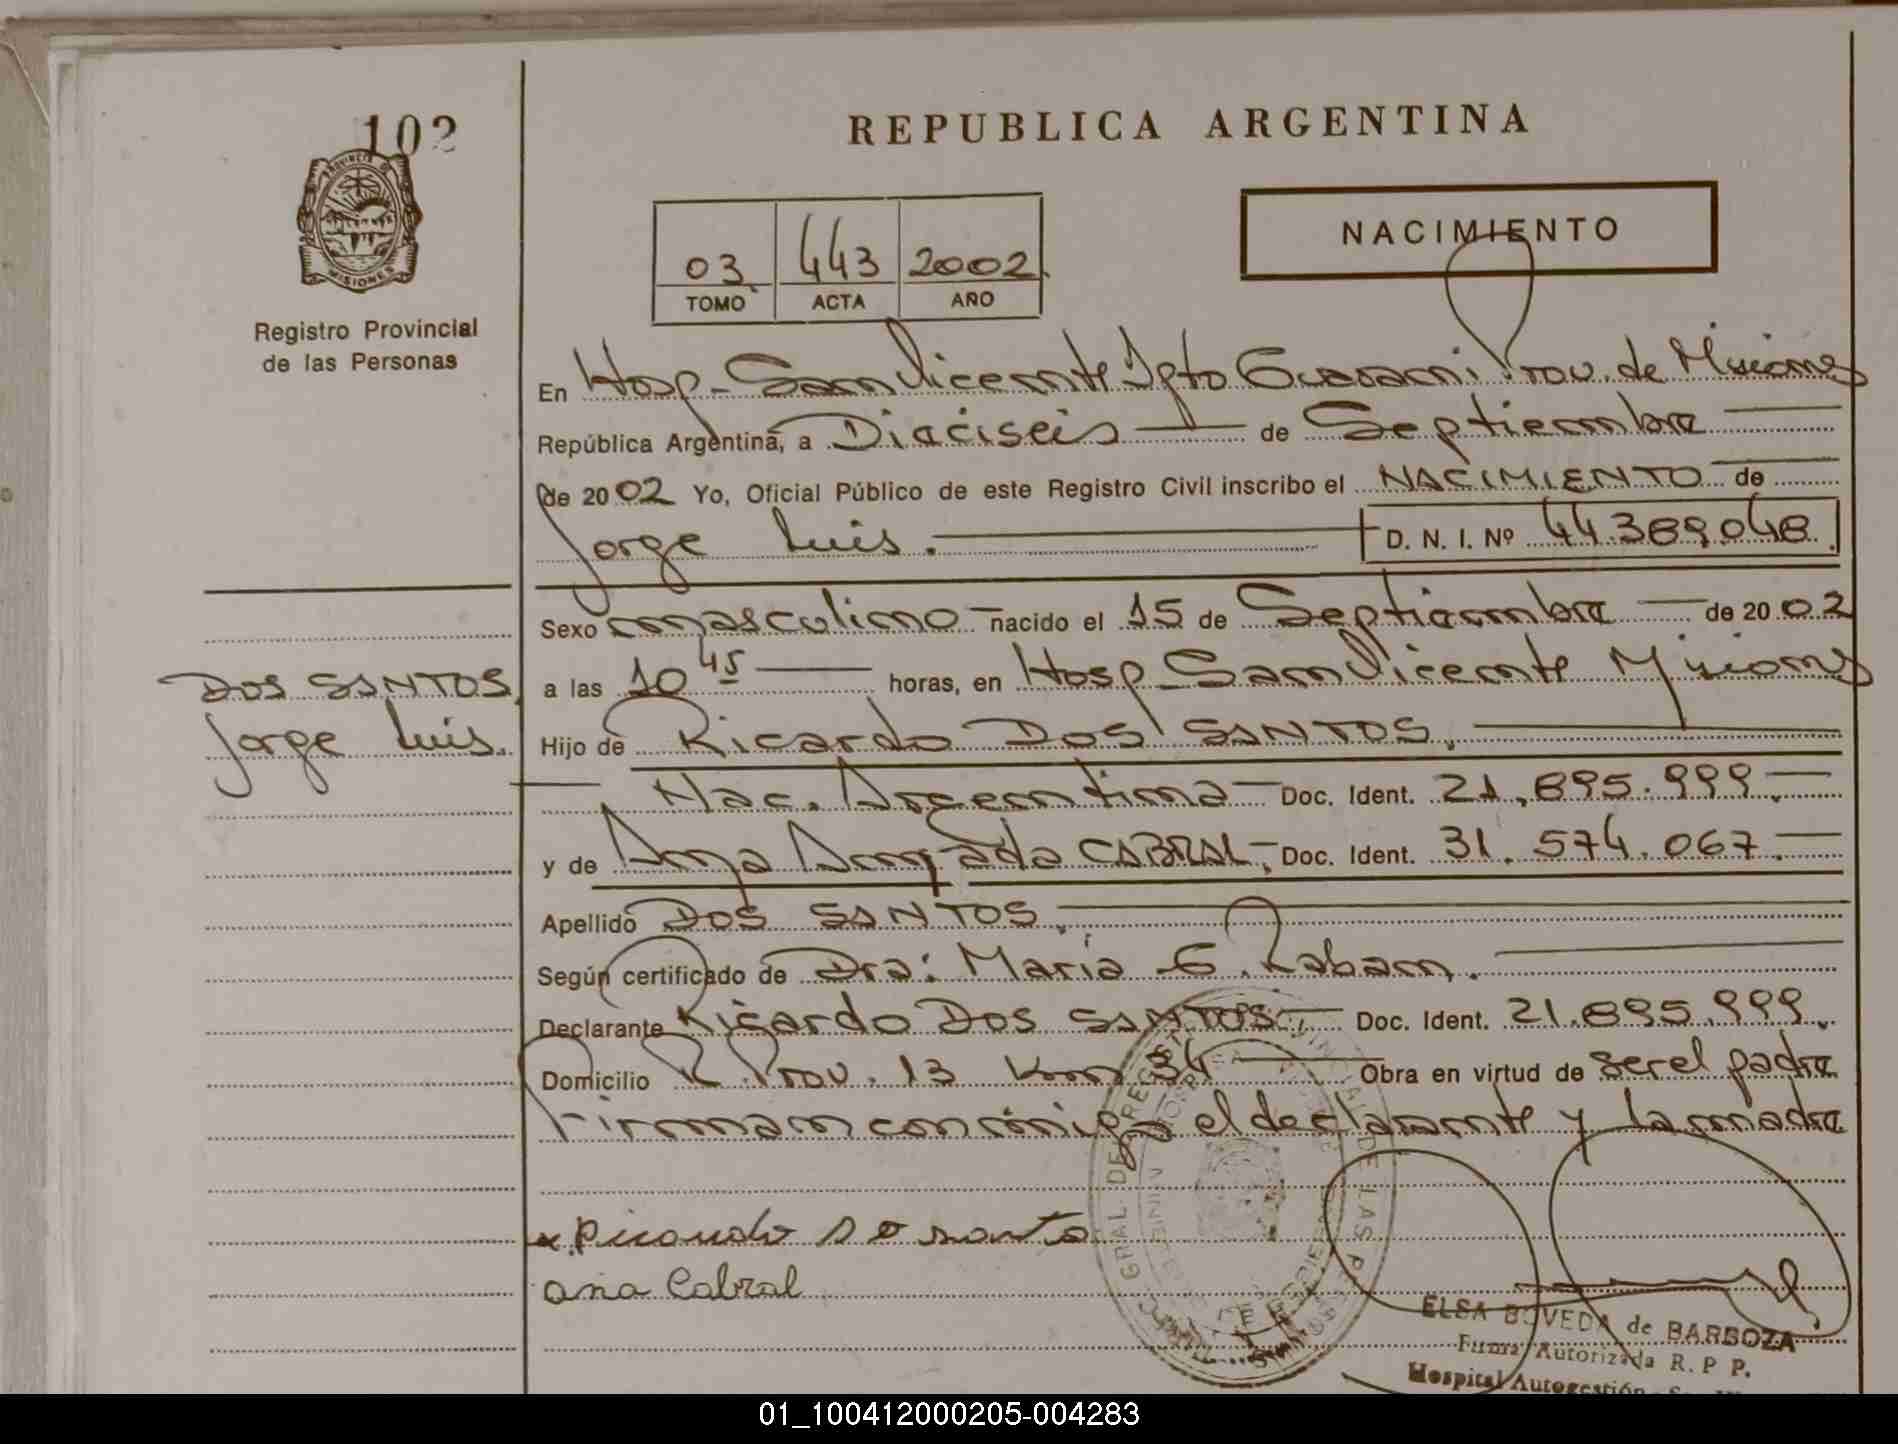 102
REPUBLICA ARGENTINA
PROVINCIA DE
MISIONES
Registro Provincial
de las Personas
03 443 2002
TOMO ACTA AÑO
NACIMIENTO
En Hosp. San Vicente Dpto Guarani Prov. de Misiones
República Argentina, a Diaciseis de Septiembre
de 2002 Yo, Oficial Público de este Registro Civil inscribo el NACIMIENTO de
Jorge Luis. D. N. I. Nº 44.389.048.
Sexo masculino nacido el 15 de Septiembre de 2002
a las 10 45 horas, en Hosp San Vicente Misiones
DOS SANTOS,
Jorge Luis.
Hijo de Ricardo DOS SANTOS.
Nac. Argentina Doc. Ident. 21.895.999.
y de Ana CABRAL, Doc. Ident. 31.574.067.
Apellido DOS SANTOS.
Según certificado de Dra: Maria E.
Declarante Ricardo DOS SANTOS. Doc. Ident. 21.895.999.
Domicilio R. Prov. 13 Km 34 Obra en virtud de ser el padre
Firman conmigo el declarante y la madre
Ana Cabral
ELSA BOVEDA de BARBOZA
Firma Autorizada R. P. P.
Hospital Autogestión
01_100412000205-004283